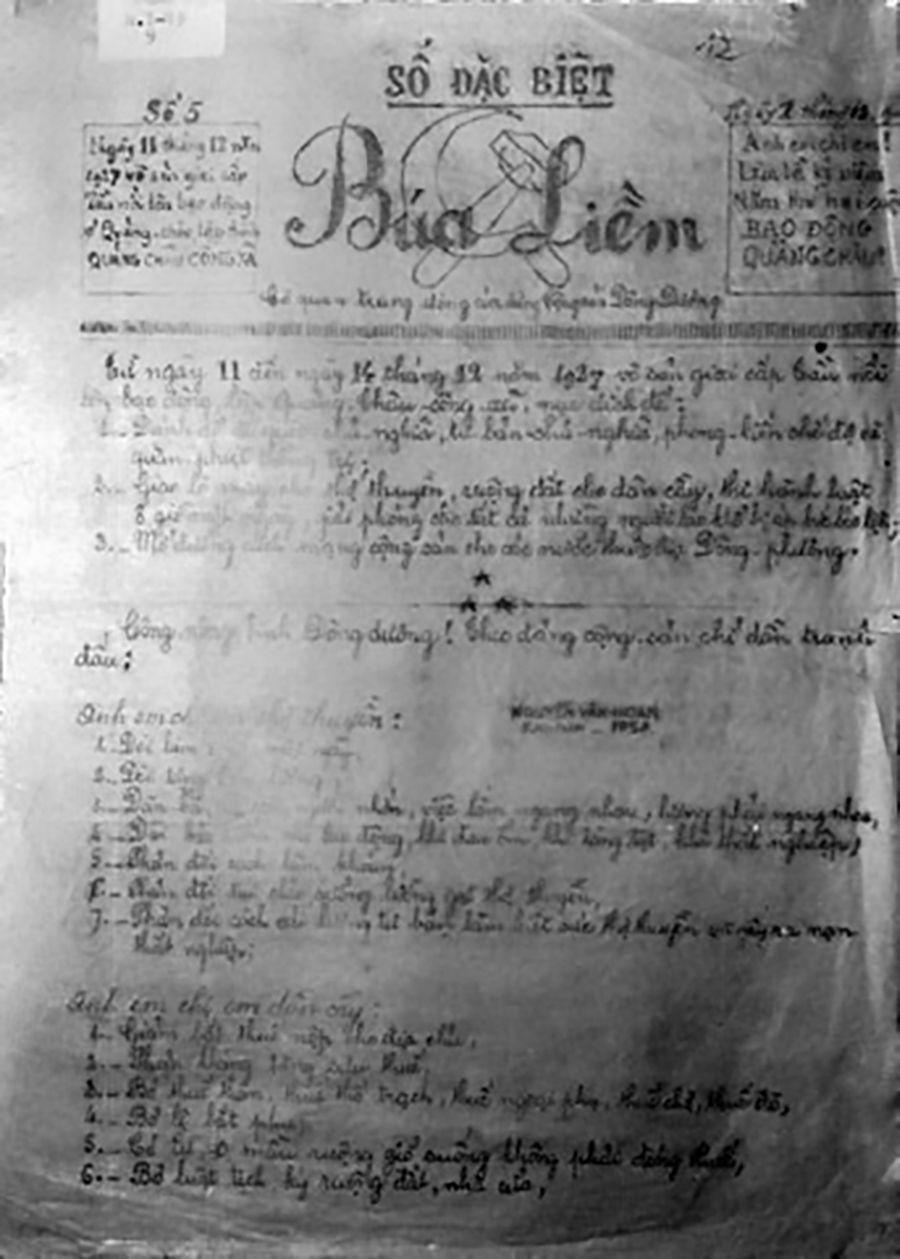 12
SỐ ĐẶC BIỆT
Số 5
Ngày 11 tháng 12 năm
1927 vô sản giai cấp
Tầu nổi lên bạo động
ở Quảng-châu lập thành
QUẢNG CHÂU CÔNG XÃ
Búa Liềm
Anh em chị em!
Làm lễ kỷ niệm
Năm thứ hai cuộc
BẠO ĐỘNG
QUẢNG CHÂU!
Cơ quan trung ương của đảng Cộng sản Đông Dương
Từ ngày 11 đến ngày 14 tháng 12 năm 1927 vô sản giai cấp Tầu nổi
lên bạo động, lập Quảng-Châu công-xã, mục đích để:
1.- Đánh đổ đế quốc chủ-nghĩa, tư bản chủ-nghĩa, phong-kiến chế độ và
quân phiệt
2.- Giao lò máy cho thợ thuyền, ruộng đất cho dân cầy, thi hành luật
8 giờ một ngày, giải phóng cho tất cả những người lao khổ bị áp bức bóc lột;
3.- Mở đường cách mạng cộng sản cho các nước thuộc địa Đông-phương.
Công nông binh Đông dương! Theo đảng cộng-sản chỉ dẫn tranh
đấu:
Anh em chị em thợ thuyền:
NGUYỄN VĂN HOAN
1.- Đòi làm ngày
2.- Đòi tăng lương
3.- Đàn bà nhớn, việc làm ngang nhau, lương phải ngang nhau,
4.- Đòi lao động, khi đau ốm, khi tàng tật, khi thất nghiệp;
5.- Phản đối cách làm khoán,
6.- Phản đối sự cúp thợ thuyền,
7.- Phản đối cách tư bản làm hết sức thợ thuyền nạn
thất nghiệp;
Anh em chị em dân cầy:
1.- Giảm bớt thuế nộp cho địa chủ,
2.- Phản kháng tăng sưu thuế,
3.- Bỏ thuế thân, thuế thổ trạch, thuế ngoại phụ, thuế chợ, thuế đò,
4.- Bỏ lệ bắt phu,
5.- Có từ mẫu ruộng giở xuống không phải đóng thuế,
6.- Bỏ luật tịch ký ruộng đất, nhà cửa,